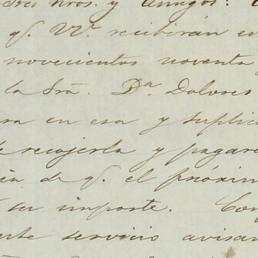 Sres Nros. y Amigos:
q. VV. recibirán en
novecientos noventa
la Sra. Da Dolores
ra en esa y suplic
recojerla y pagar
de q. el próxim
su importe. Con
servicio avisa